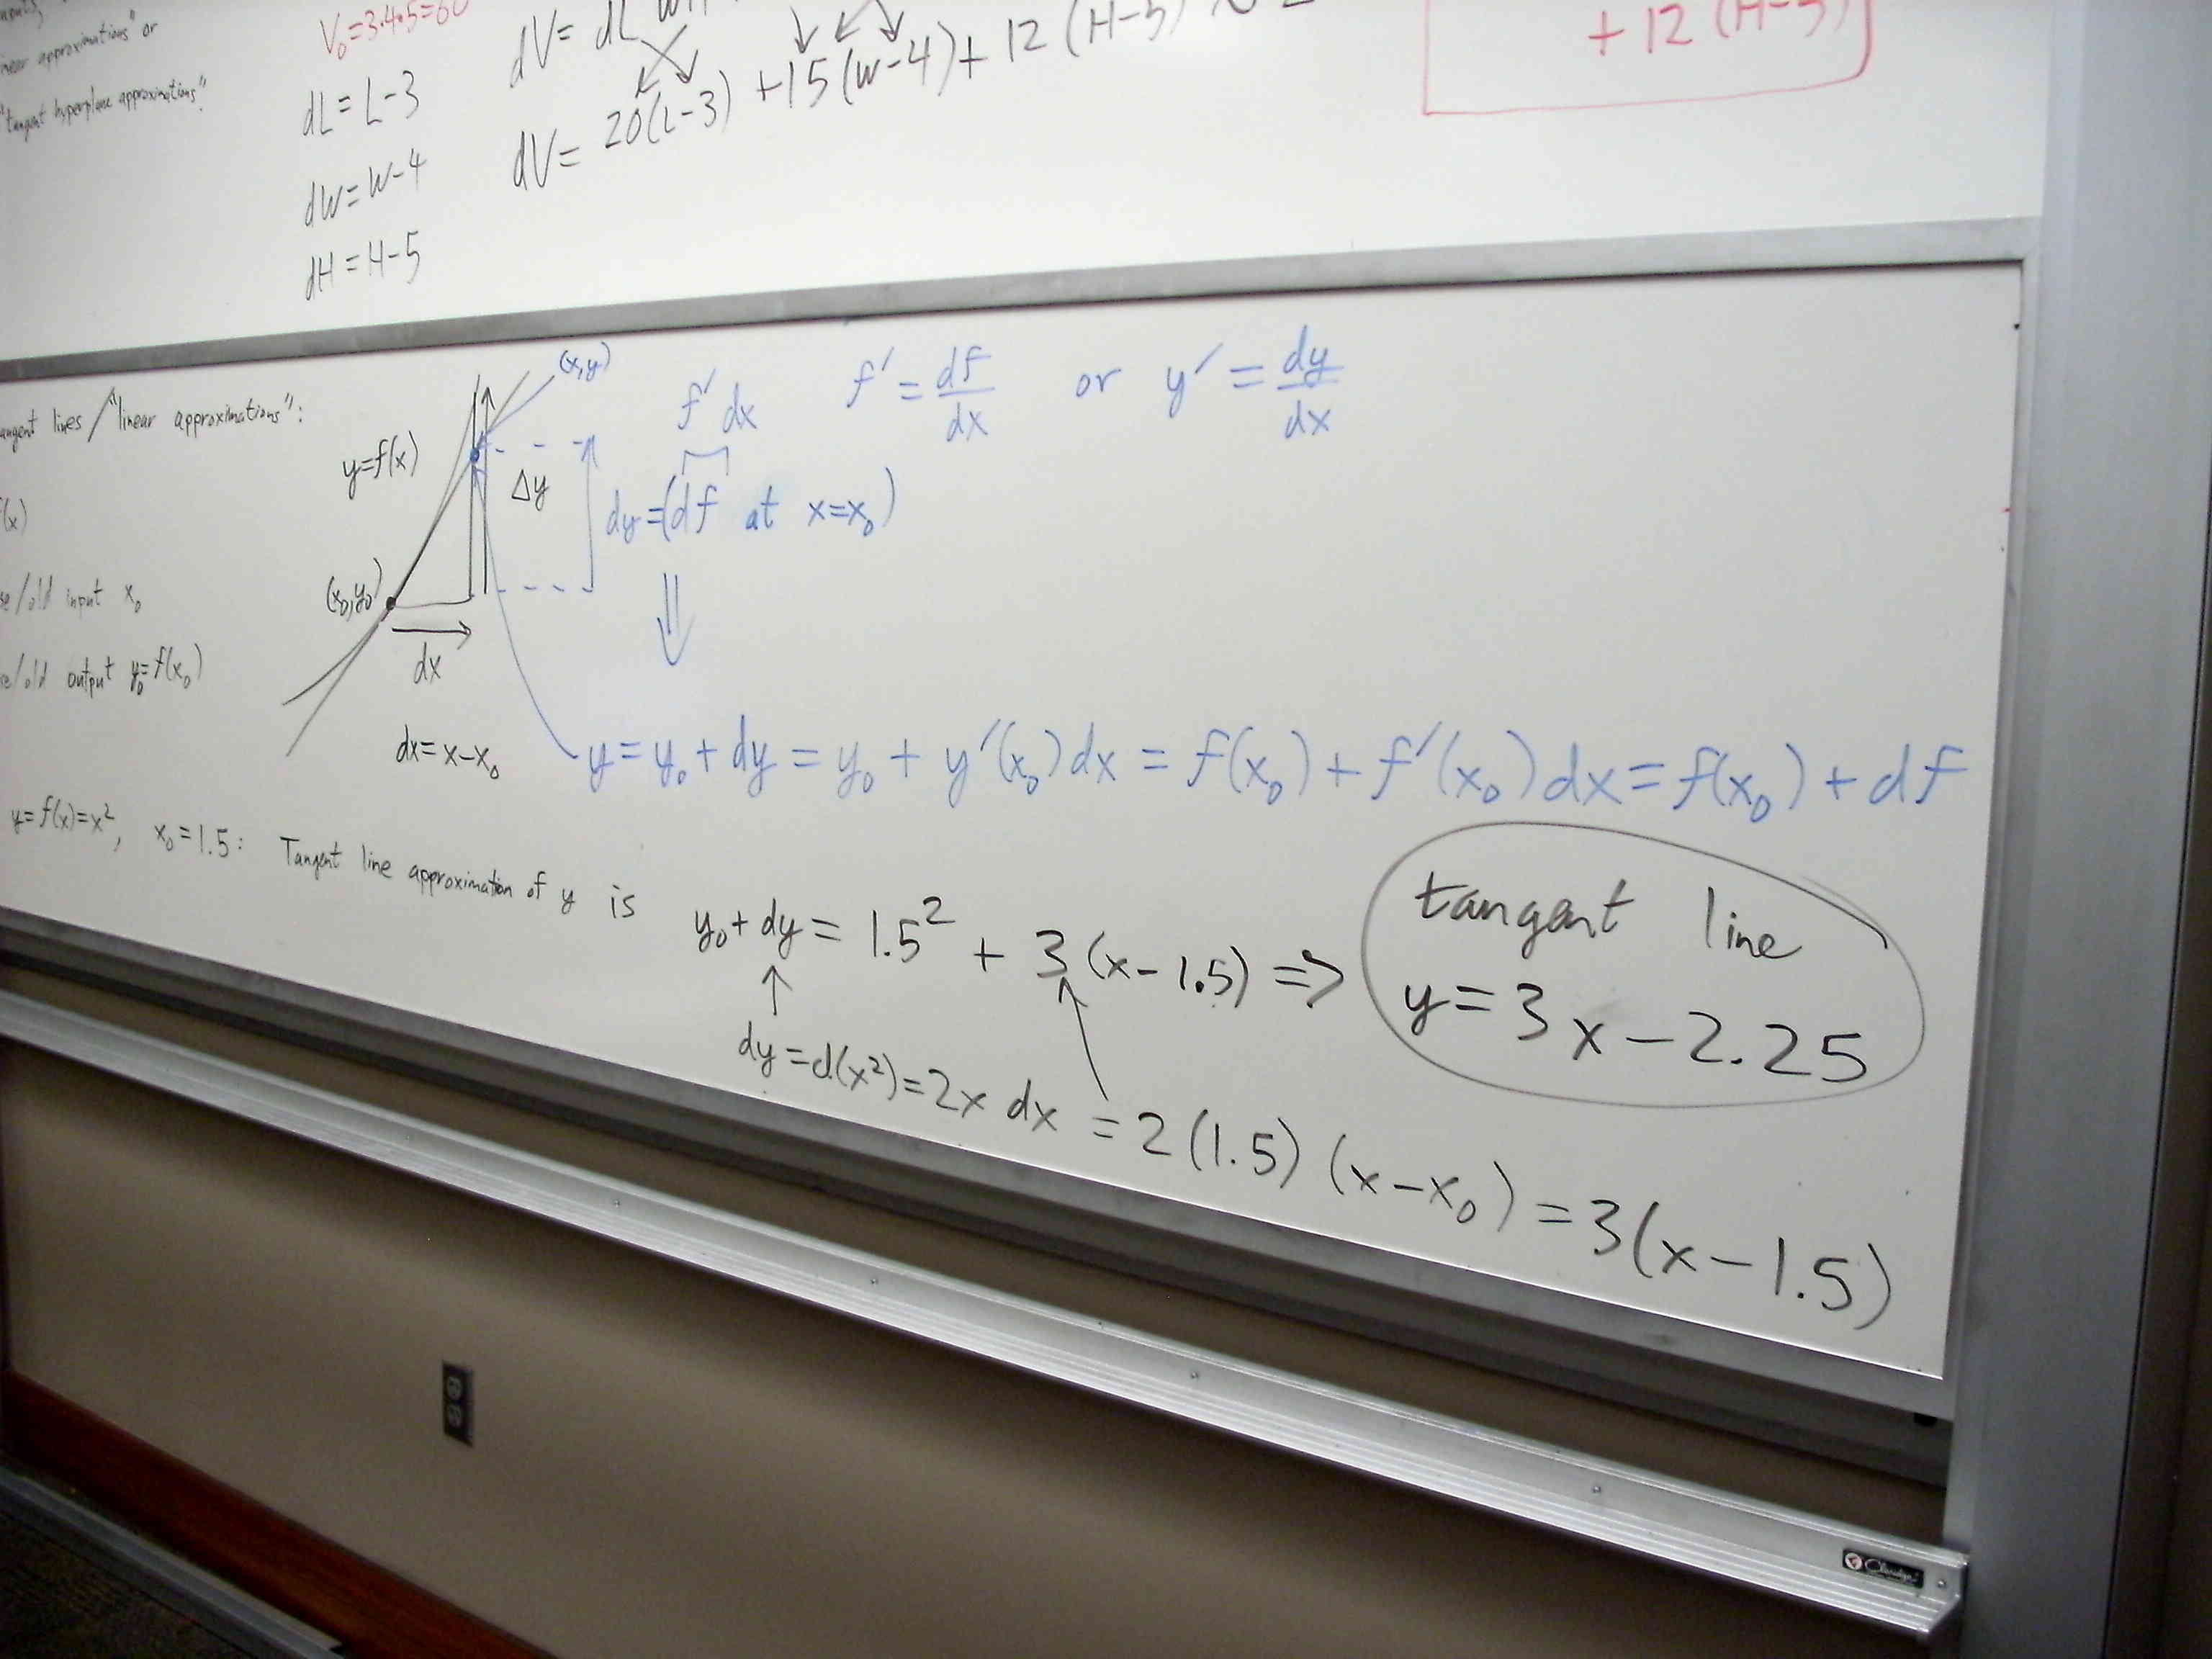 inear approximations" or
"tangent hyperplane approximations"
V₀=3·4·5=60
dL=L-3
dW=W-4
dH=H-5
dV= dL
dV= 20(L-3) +15(W-4)+ 12 (H-5)
+ 12 (H-5)
angent lines / "linear approximations":
f(x)
se/old input x₀
se/old output y₀=f(x₀)
y=f(x)
(x,y)
Δy
(x₀,y₀)
dx
dx=x-x₀
f' dx
f' = df/dx or y' = dy/dx
dy=(df at x=x₀)
⇓
y=y₀+dy=y₀+y'(x₀)dx=f(x₀)+f'(x₀)dx=f(x₀)+df
y=f(x)=x², x₀=1.5: Tangent line approximation of y is y₀+dy= 1.5² + 3(x-1.5) ⇒
tangent line
y=3x-2.25
dy=d(x²)=2x dx =2(1.5)(x-x₀)=3(x-1.5)
Claridge